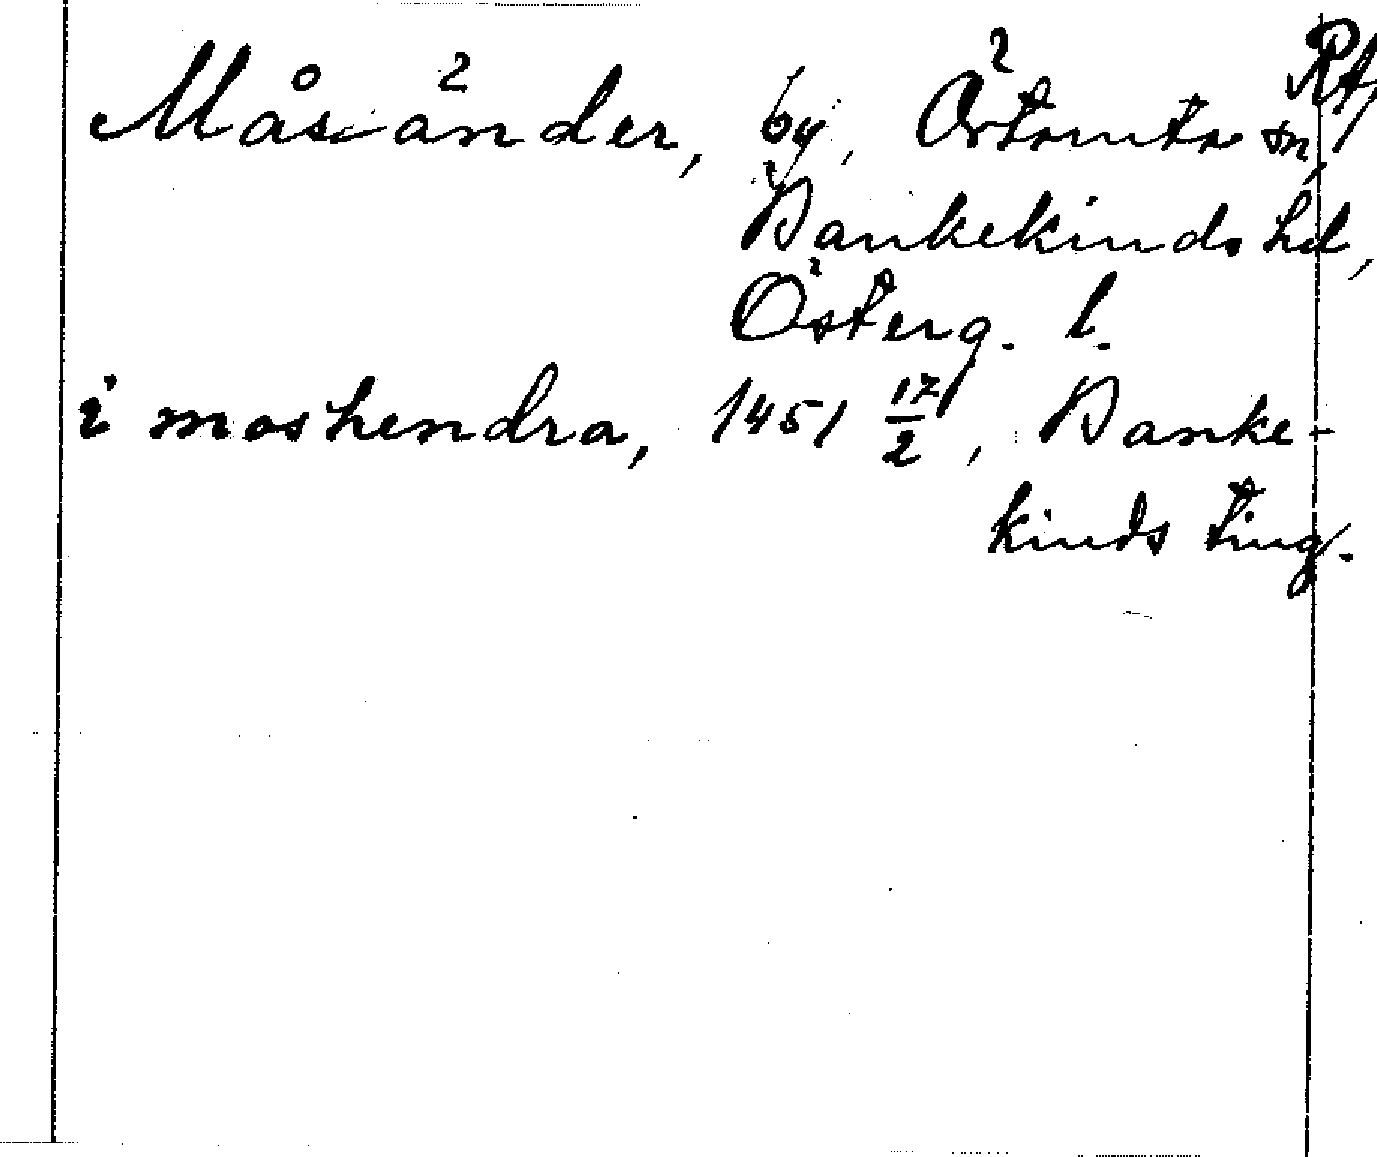 Måsänder, by, Örtomta sn, Rt,
Bankekinds hd,
Österg. l.
i moshendra, 1451 17/2, Banke-
kinds ting.